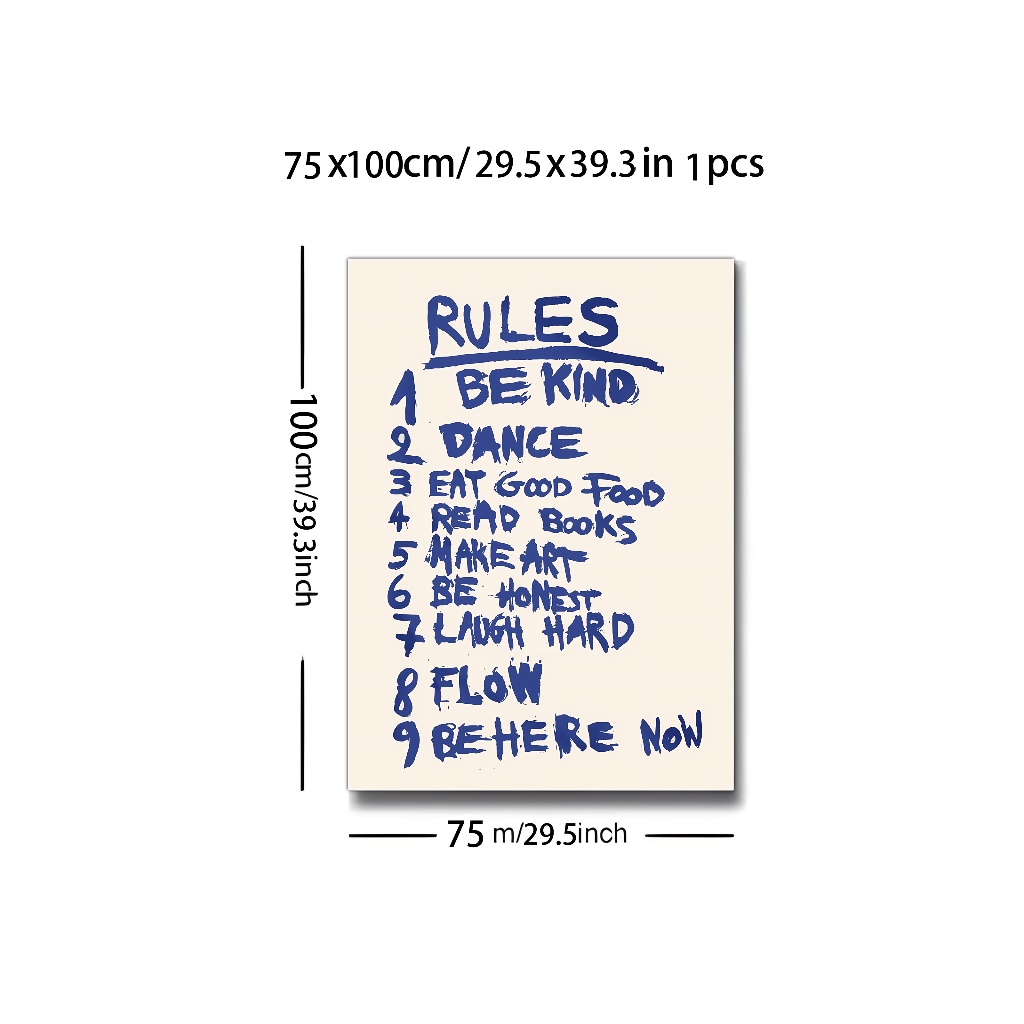 75x100cm/ 29.5x39.3in 1pcs
100cm/39.3inch
RULES
1 BE KIND
2 DANCE
3 EAT GOOD FOOD
4 READ BOOKS
5 MAKE ART
6 BE HONEST
7 LAUGH HARD
8 FLOW
9 BE HERE NOW
75 m/29.5inch